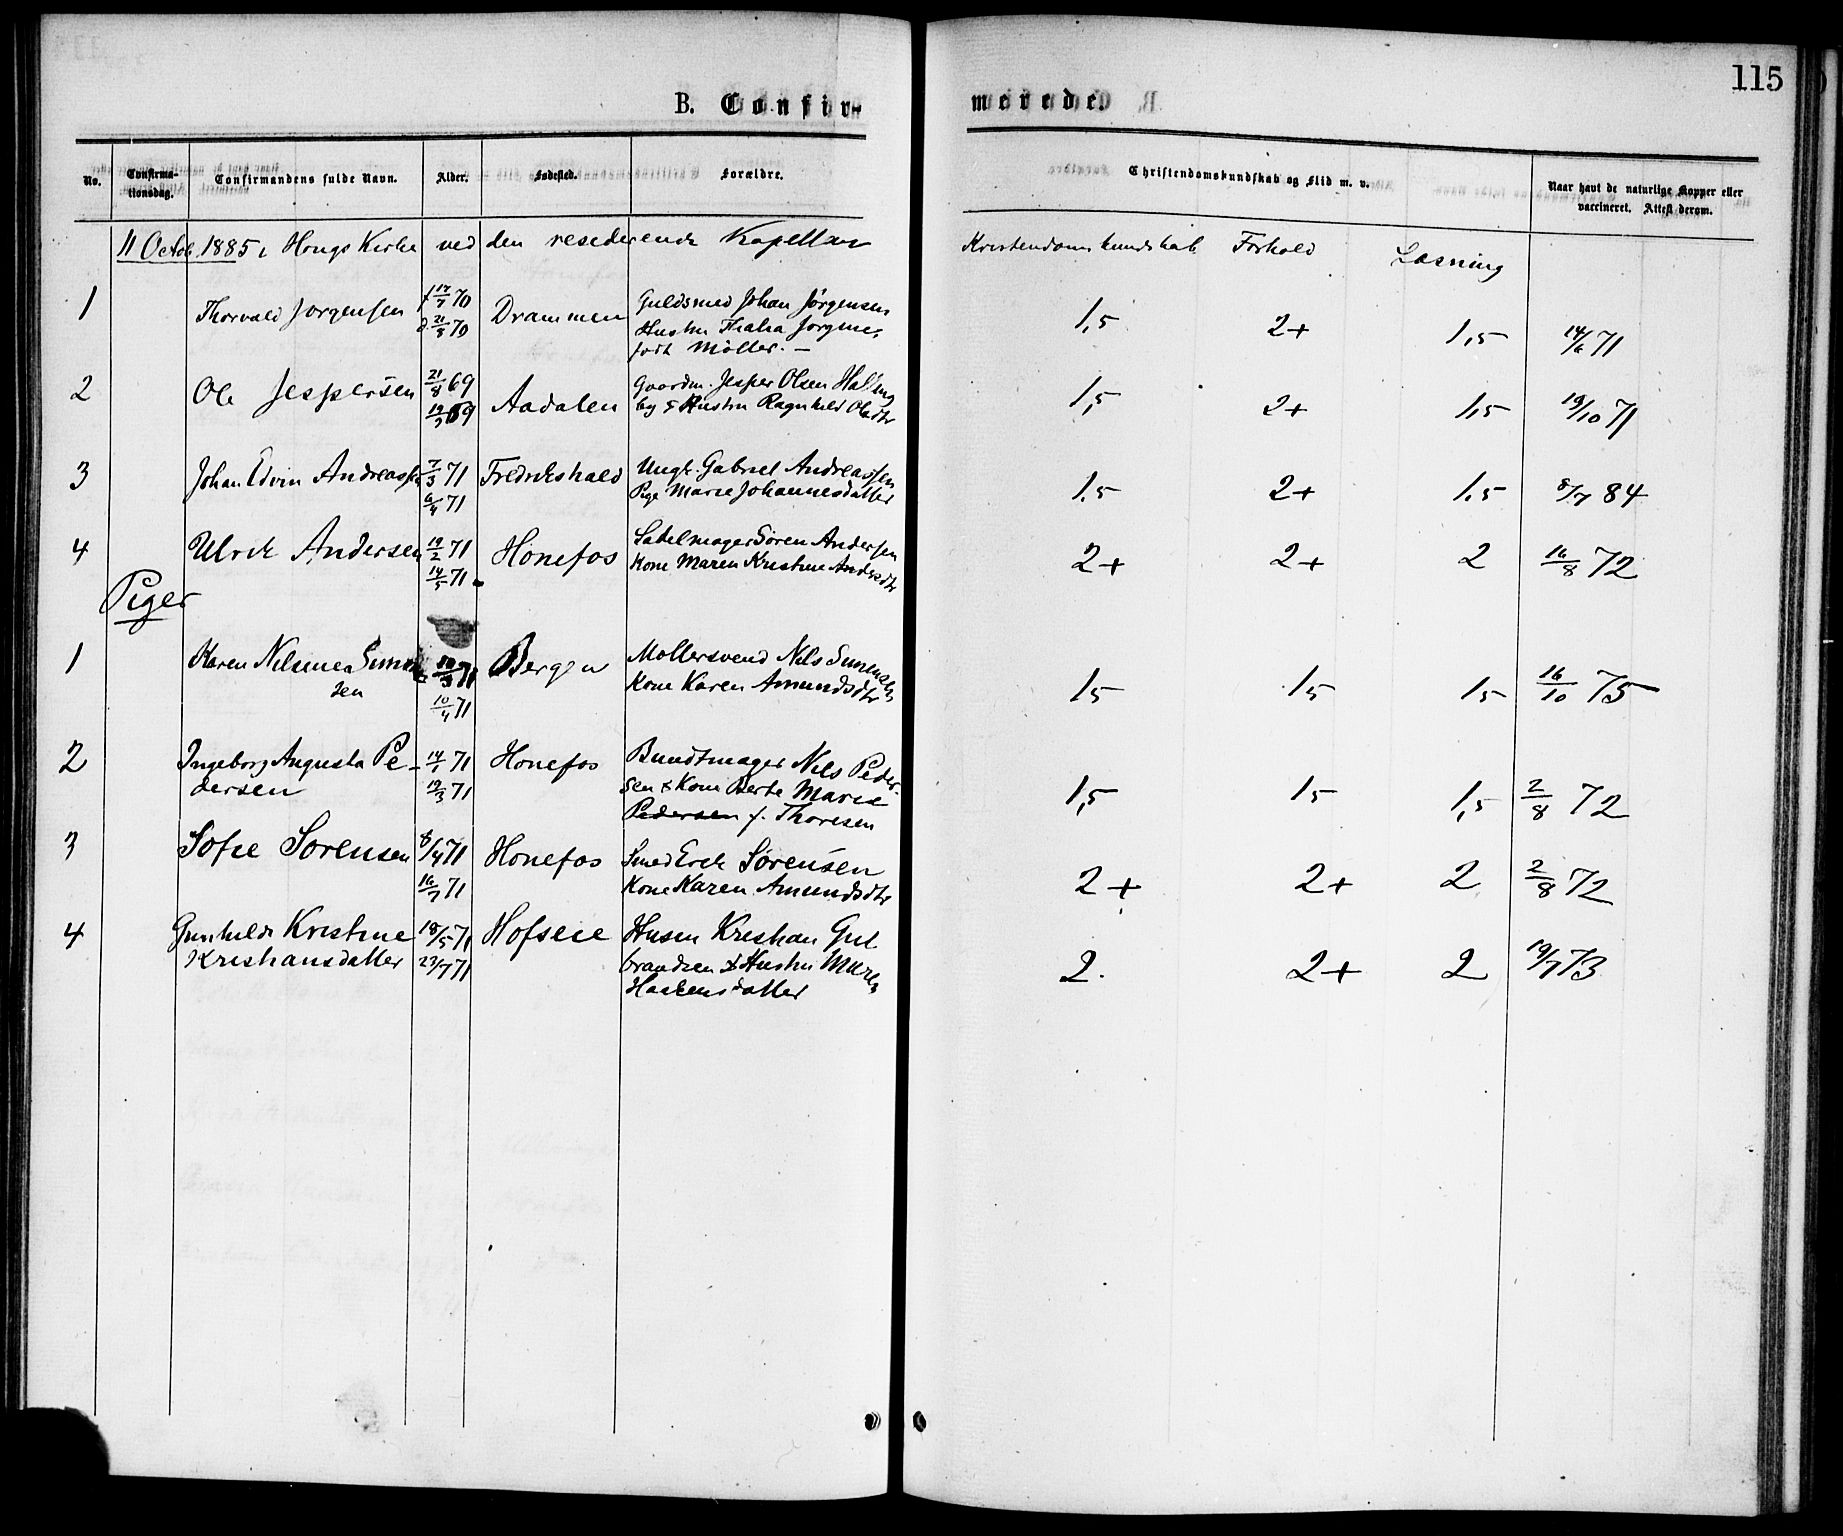 115
B. Confir-
merede.
No.
Confirma-
tionsdag.
Confirmandens fulde Navn.
Alder.
Fødested.
Forældre.
Christendomskundskab og Flid m. v.
Naar havt de naturlige Kopper eller
vaccineret. Attest derom.
11 Octob. 1885 i Hougs Kirke ved den resederende Kapellan
Kristendomskundskab Forhold Læsning
1 Thorvald Jørgensen 70 Drammen Guldsmed Johan Jørgensen 1,5 2+ 1,5 14/6 71
21/8 70 Hustru Thalia Jørgine,
født Møller. —
2 Ole Jespersen 21/8 69 Aadalen Gaardm. Jesper Olsen Halling 1,5 2+ 1,5 19/10 71
69 by & Hustru Ragnhild Olsdtr
3 Johan Edvin Andreassen 7/3 71 Fredrikshald Ungk. Gabriel Andreassen 1,5 2+ 1,5 8/7 84
6/4 71 Pige Marie Johannesdatter
4 Ulrik Andersen 19/2 71 Hønefos Sadelmager Søren Andersen 2+ 2+ 2 16/8 72
14/5 71 Kone Maren Kristine Andersdtr
Piger
1 Karen Nilsinea Simon 71 Bergen Møllersvend Nils Simensen 15 15 15 16/10 75
sen 10/4 71 Kone Karen Amundsdtr
2 Ingeborg Augusta Pe- 14/1 71 Hønefos Bundtmager Nils Peder- 1,5 15 1,5 2/8 72
dersen 19/3 71 sen & Kone Berte Marie
Pedersen f. Thoresen
3 Sofie Sørensen 8/4 71 Hønefos Smed Erik Sørensen 2+ 2+ 2 2/8 72
16/7 71 Kone Karen Amundsdtr
4 Gunhilde Kristine 18/5 71 Hofseie Husm Kristian Gul 2. 2+ 2 19/7 73
Kristiansdatter 23/7 71 brandsen & Hustru Maren
Haakensdatter